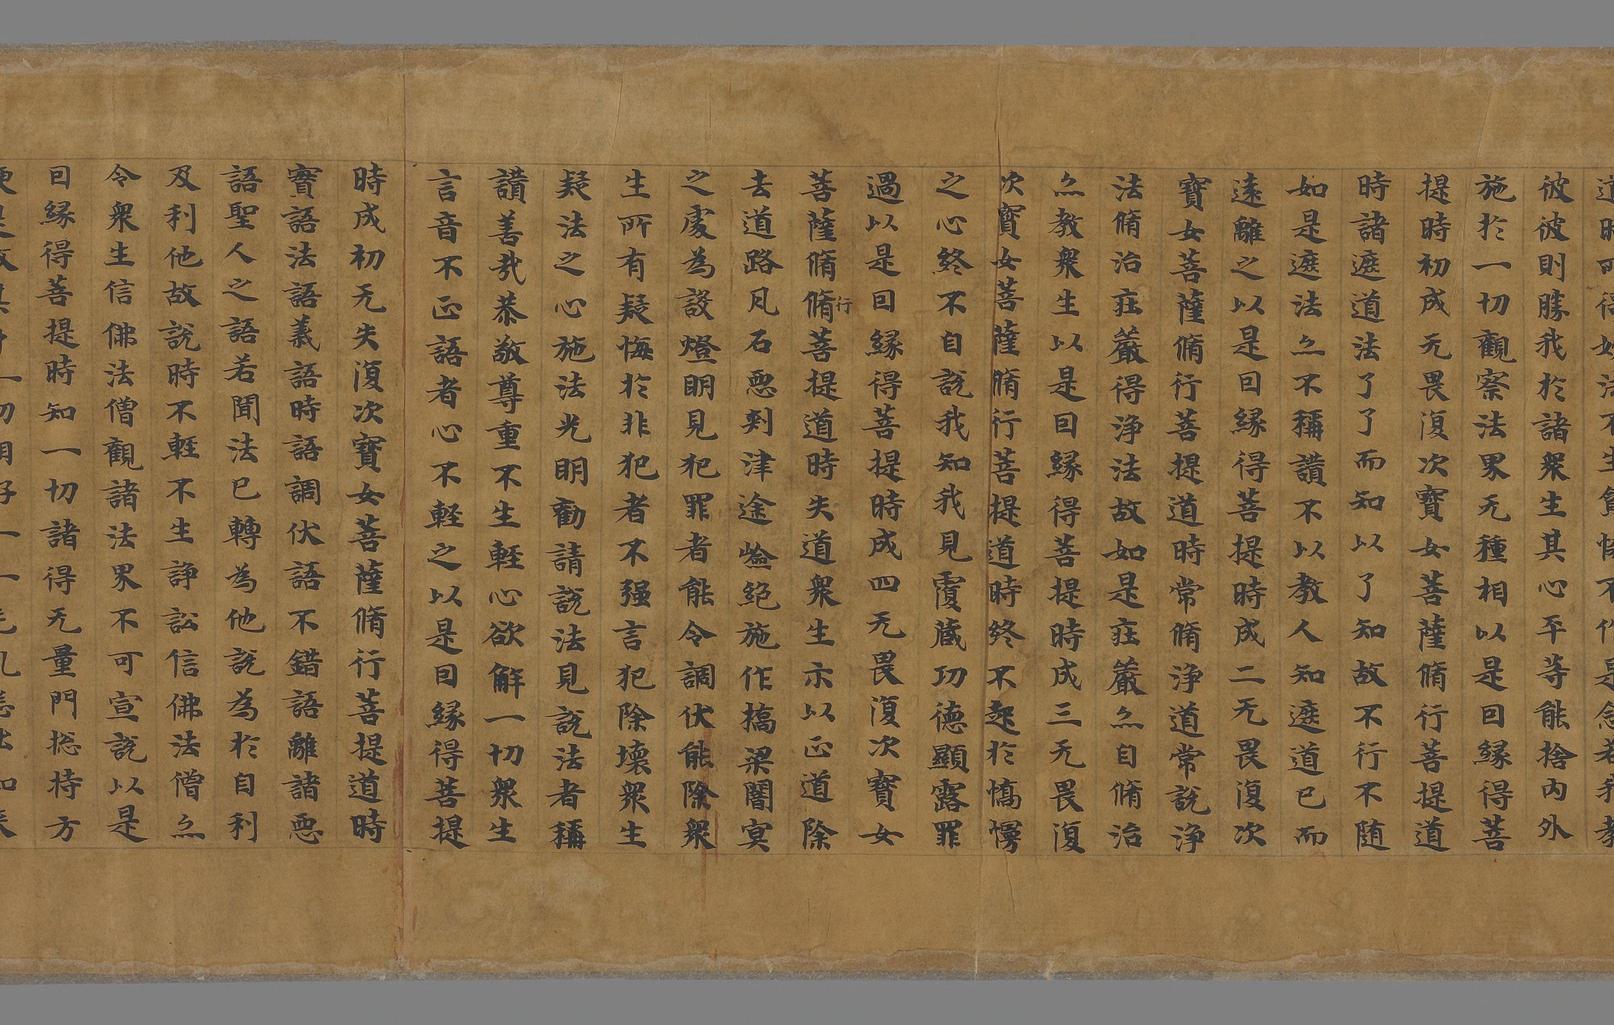 彼彼則勝我於諸衆生其心平等能捨內外
施於一切觀察法界无種相以是回緣得菩
提時初成无畏復次寶女菩薩脩行菩提道
時諸遮道法了了而知以了知故不行不随
如是遮法亦不稱讚不以教人知遮道已而
遠離之以是回緣得菩提時成二无畏復次
寶女菩薩脩行菩提道時常脩淨道常說淨
法脩治莊嚴得淨法故如是莊嚴亦自脩治
亦教衆生以是回緣得菩提時成三无畏復
次寶女菩薩脩行菩提道時終不起於憍慢
之心終不自說我知我見覆藏功德顯露罪
過以是回緣得菩提時成四无畏復次寶女
菩薩脩脩行菩提道時失道衆生示以正道除
去道路凡石惡刺津途嶮絕施作橋梁闇冥
之處為設燈明見犯罪者能令調伏能除衆
生所有疑悔於非犯者不强言犯除壞衆生
疑法之心施法光明勸請說法見說法者稱
讚善哉恭敬尊重不生輕心欲解一切衆生
言音不正語者心不輕之以是回緣得菩提
時成初无失復次寶女菩薩脩行菩提道時
寶語法語義語時語調伏語不錯語離諸惡
語聖人之語若聞法已轉為他說為於自利
及利他故說時不輕不生諍訟信佛法僧亦
令衆生信佛法僧觀諸法界不可宣說以是
回緣得菩提時知一切諸得无量門捴持方